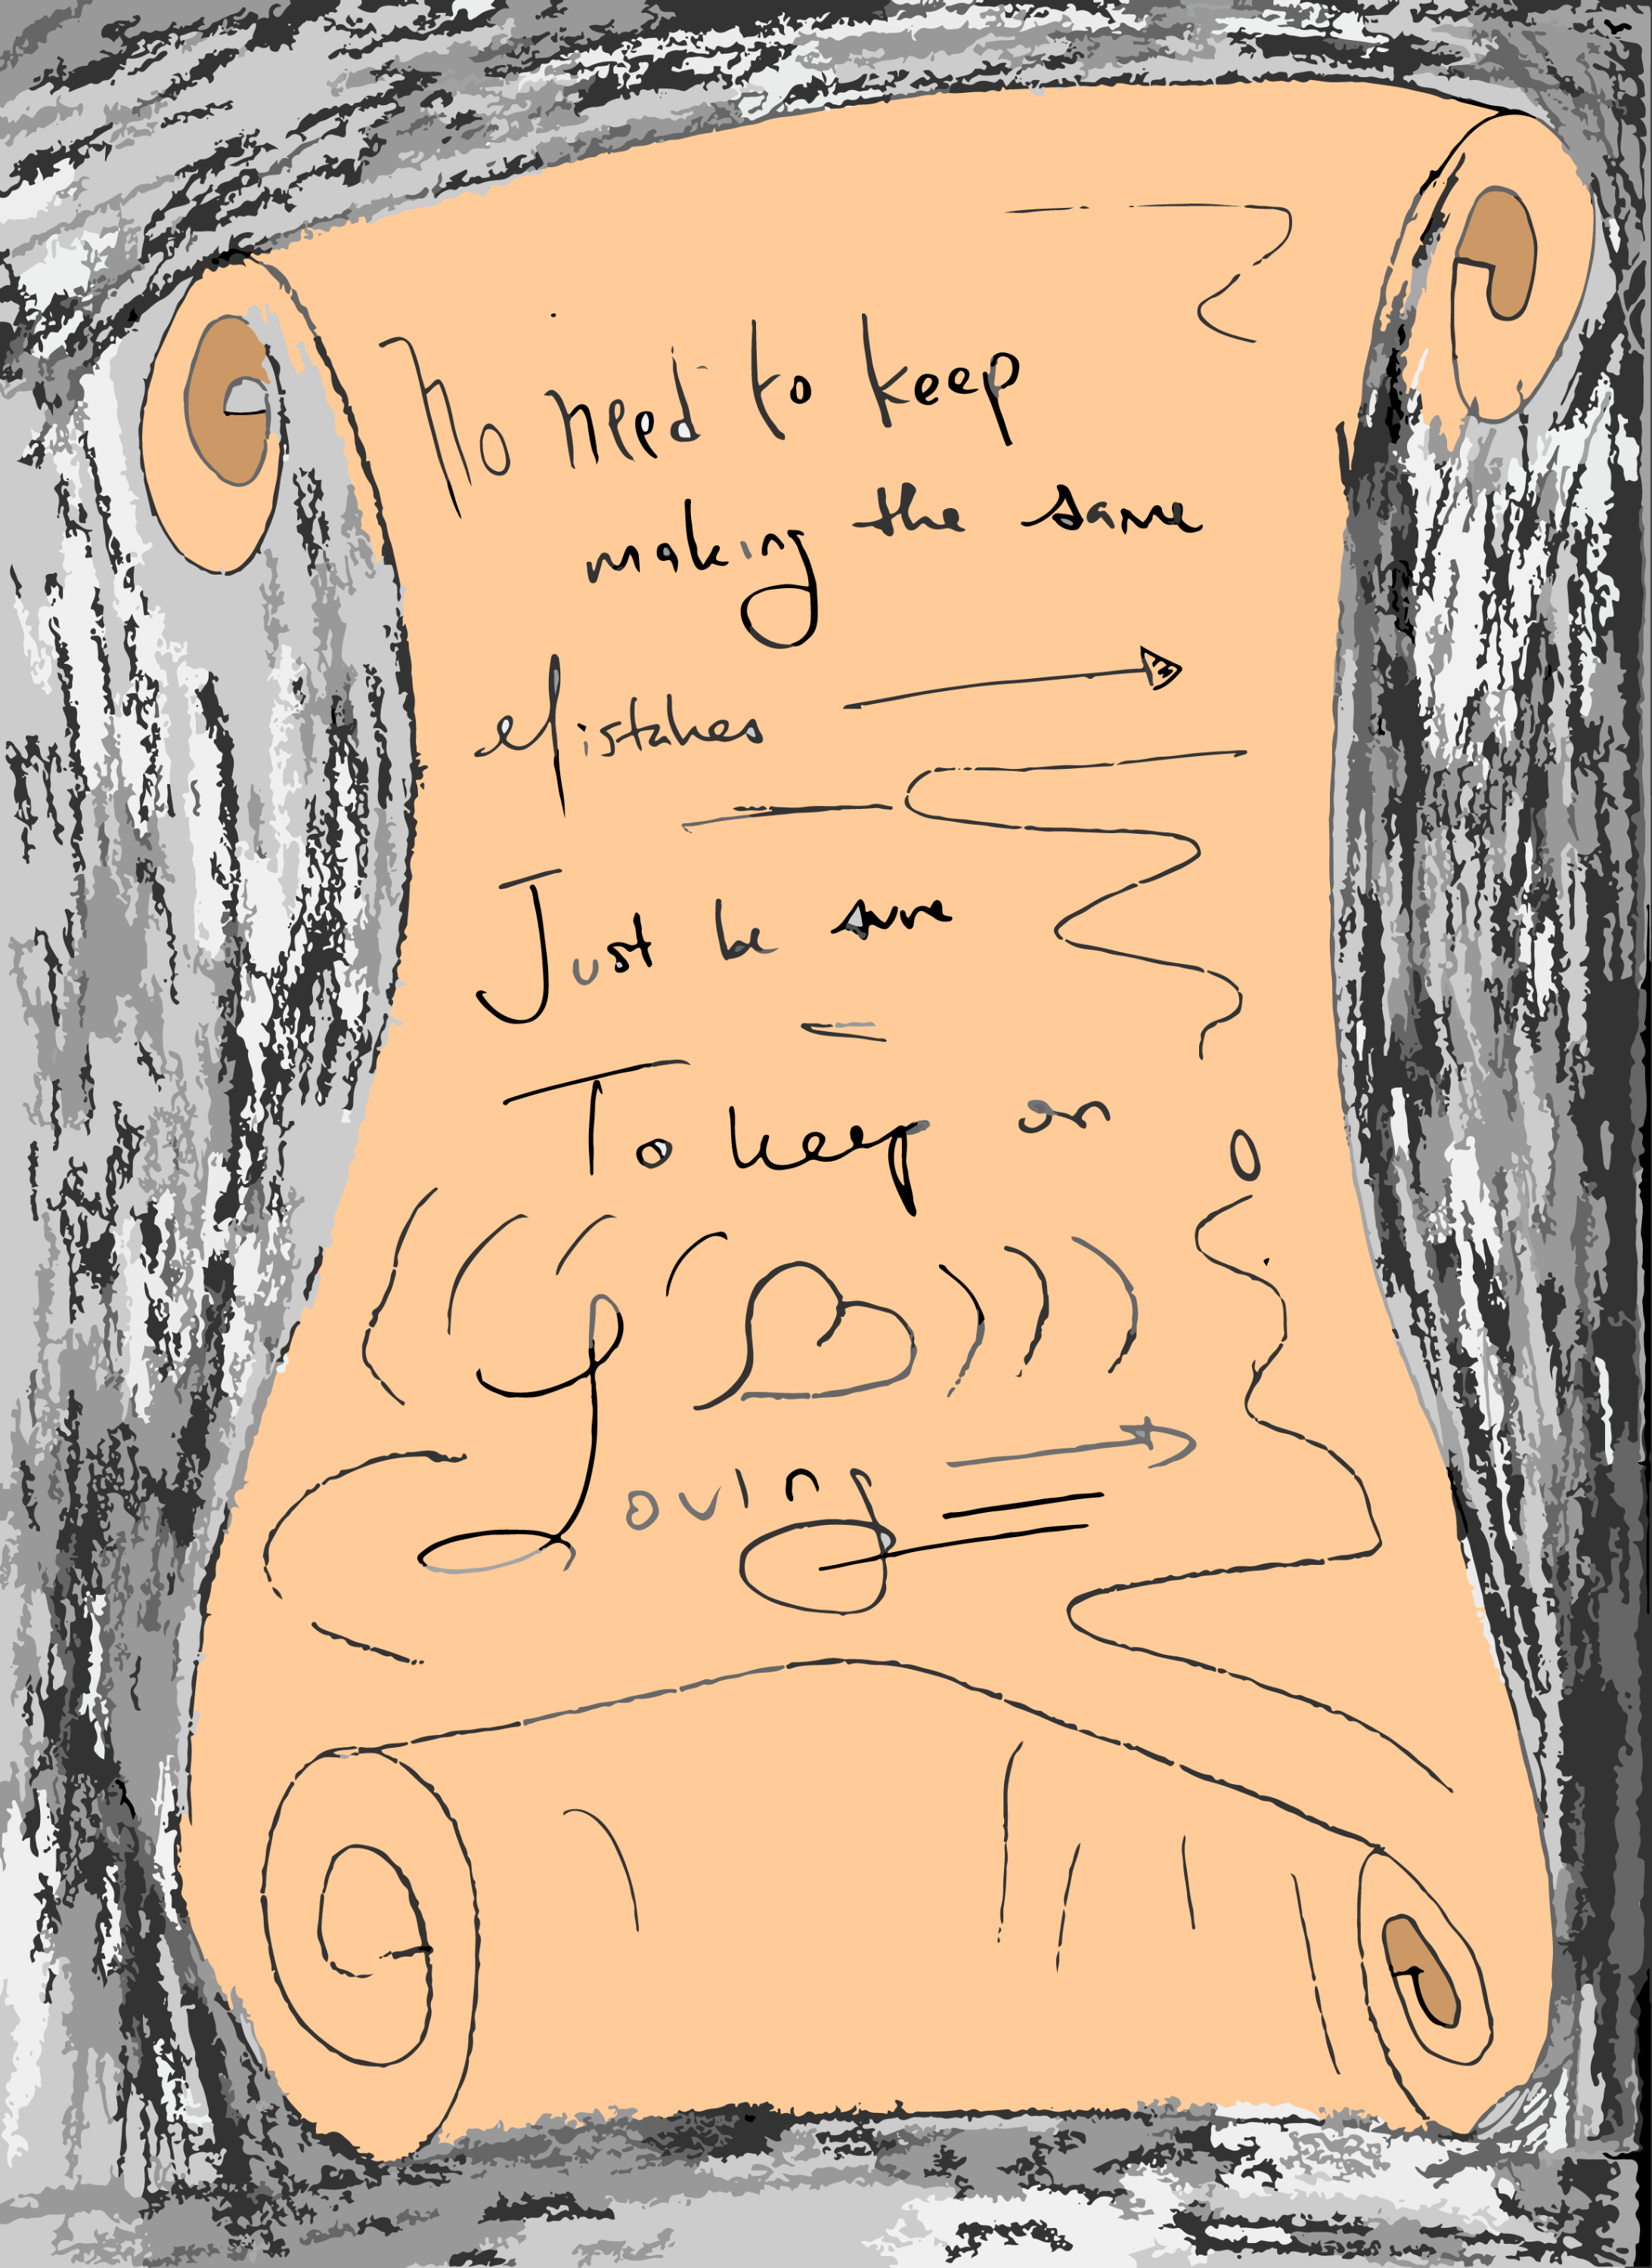 No need to keep
making the same
Mistakes
Just be sure
To keep on
Loving